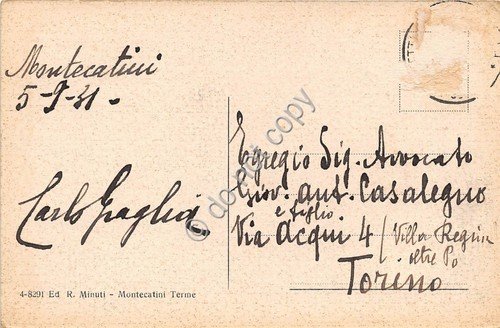 Montecatini
5-9-41-
Carlo Graglia
Egregio Sig. Avvocato
Giov. Ant. Casalegno
e figlio
Via Acqui 4 / Villa Regina
oltre Po
Torino
4-8291 Ed R. Minuti - Montecatini Terme
© do not copy